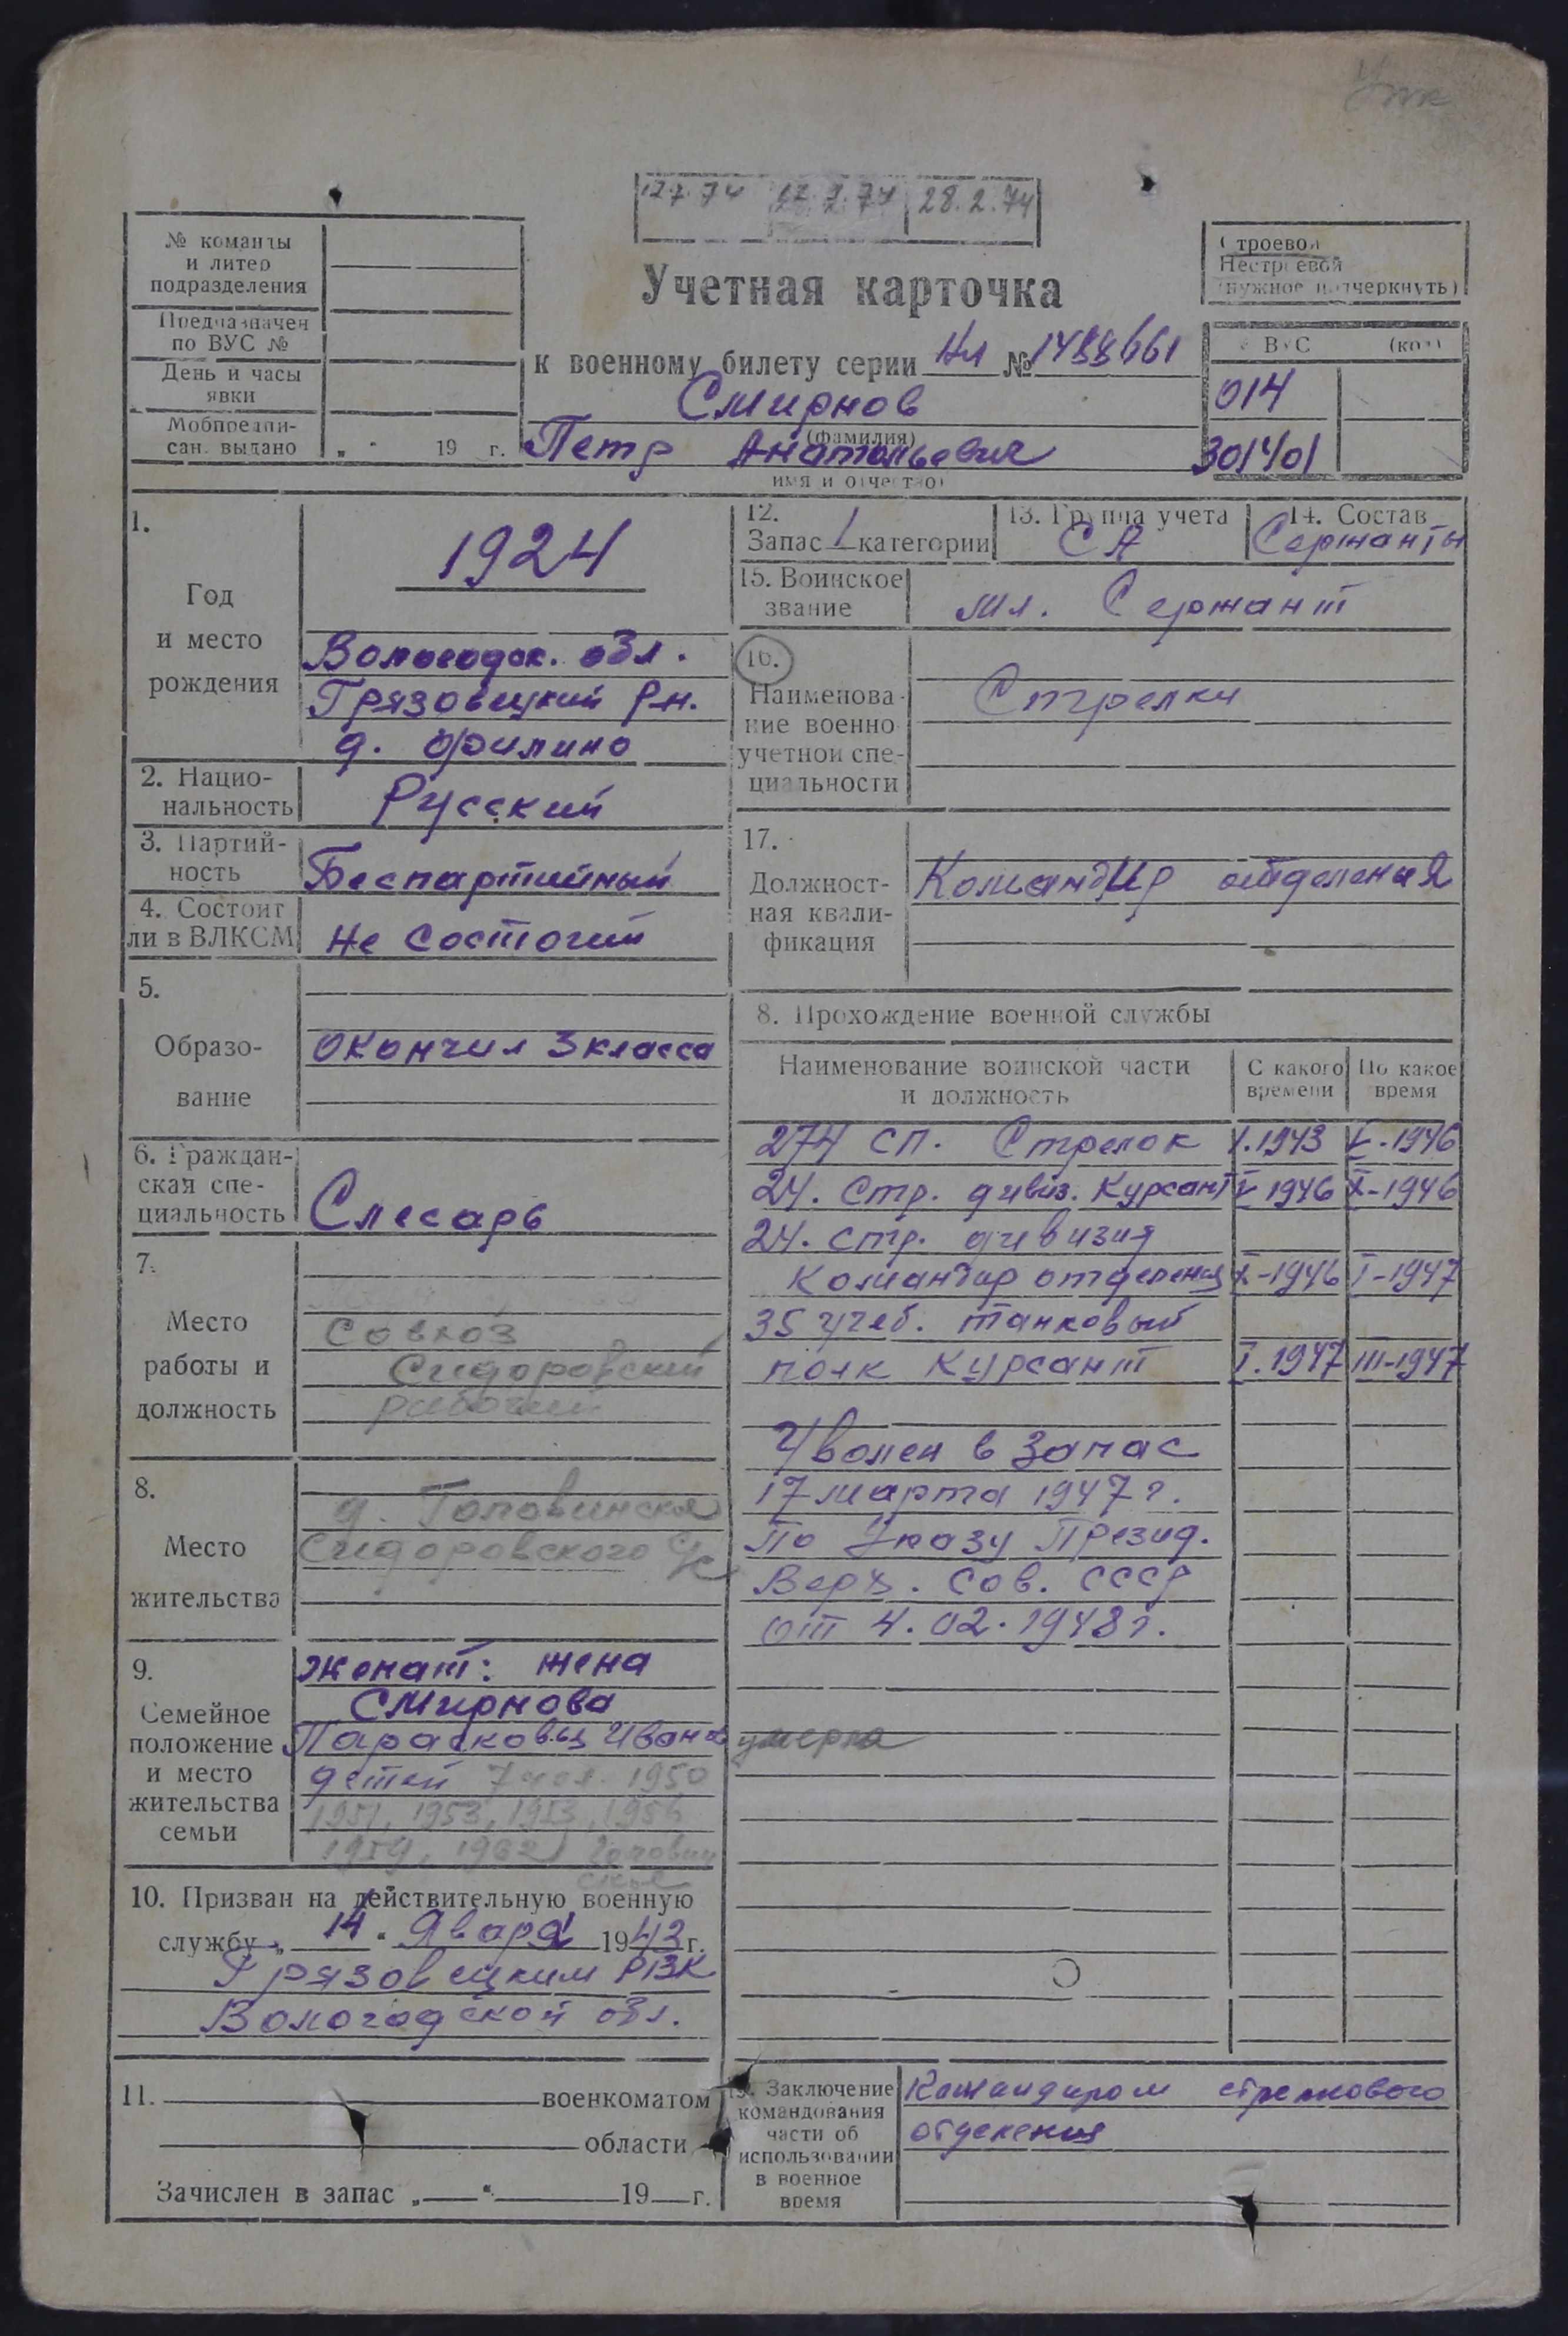 12.7.74 12.2.74 28.2.74
№ команды
и литер
подразделения
Предназначен
по ВУС №
День и часы
явки
Мобпредпи-
сан. выдано „ " 19 г.
Строевой
Нестроевой
(нужное подчеркнуть)
Учетная карточка
к военному билету серии Нл № 1488661
Смирнов
(фамилия)
Петр Анатольевич
имя и отчество)
ВУС (код)
014
301401
1.
Год
и место
рождения
1924
Вологодск. обл.
Грязовецкий р-н.
д. Филино
2. Нацио-
нальность
Русский
3. Партий-
ность
Беспартийный
4. Состоит
ли в ВЛКСМ
Не состоит
5.
Образо-
вание
окончил 3 класса
6. Граждан-
ская спе-
циальность
Слесарь
7.
Место
работы и
должность
Совхоз
Сидоровский
рабочий
8.
Место
жительства
д. Головинское
Сидоровского с/с
9.
Семейное
положение
и место
жительства
семьи
Женат: жена
Смирнова
Парасковья Иванов умерла
детей 7 чел. 1950
1951, 1953, 1953, 1956
1959, 1962 Головин
ское
10. Призван на действительную военную
службу „ 14 " Январа 1943 г.
Грязовецким РВК
Вологодской обл.
11. военкоматом
области
Зачислен в запас „ " 19 г.
12.
Запас 1 категории
13. Группа учета
СА
14. Состав
Сержанты
15. Воинское
звание
мл. Сержант
16.
Наименова-
ние военно
учетной спе-
циальности
Стрелки
17.
Должност-
ная квали-
фикация
Командир отделения
8. Прохождение военной службы
Наименование воинской части
и должность
С какого
времени
По какое
время
274 сп. Стрелок I.1943 V-1946
24. Стр. дивиз. Курсант V 1946 X-1946
24. стр. дивизия
Командир отделения X-1946 I-1947
35 учеб. танковый
полк Курсант I.1947 III-1947
Уволен в запас
17 марта 1947 г.
По Указу Презид.
Верх. Сов. СССР
от 4.02.1948 г.
19. Заключение
командования
части об
использовании
в военное
время
Командиром стрелкового
отделения